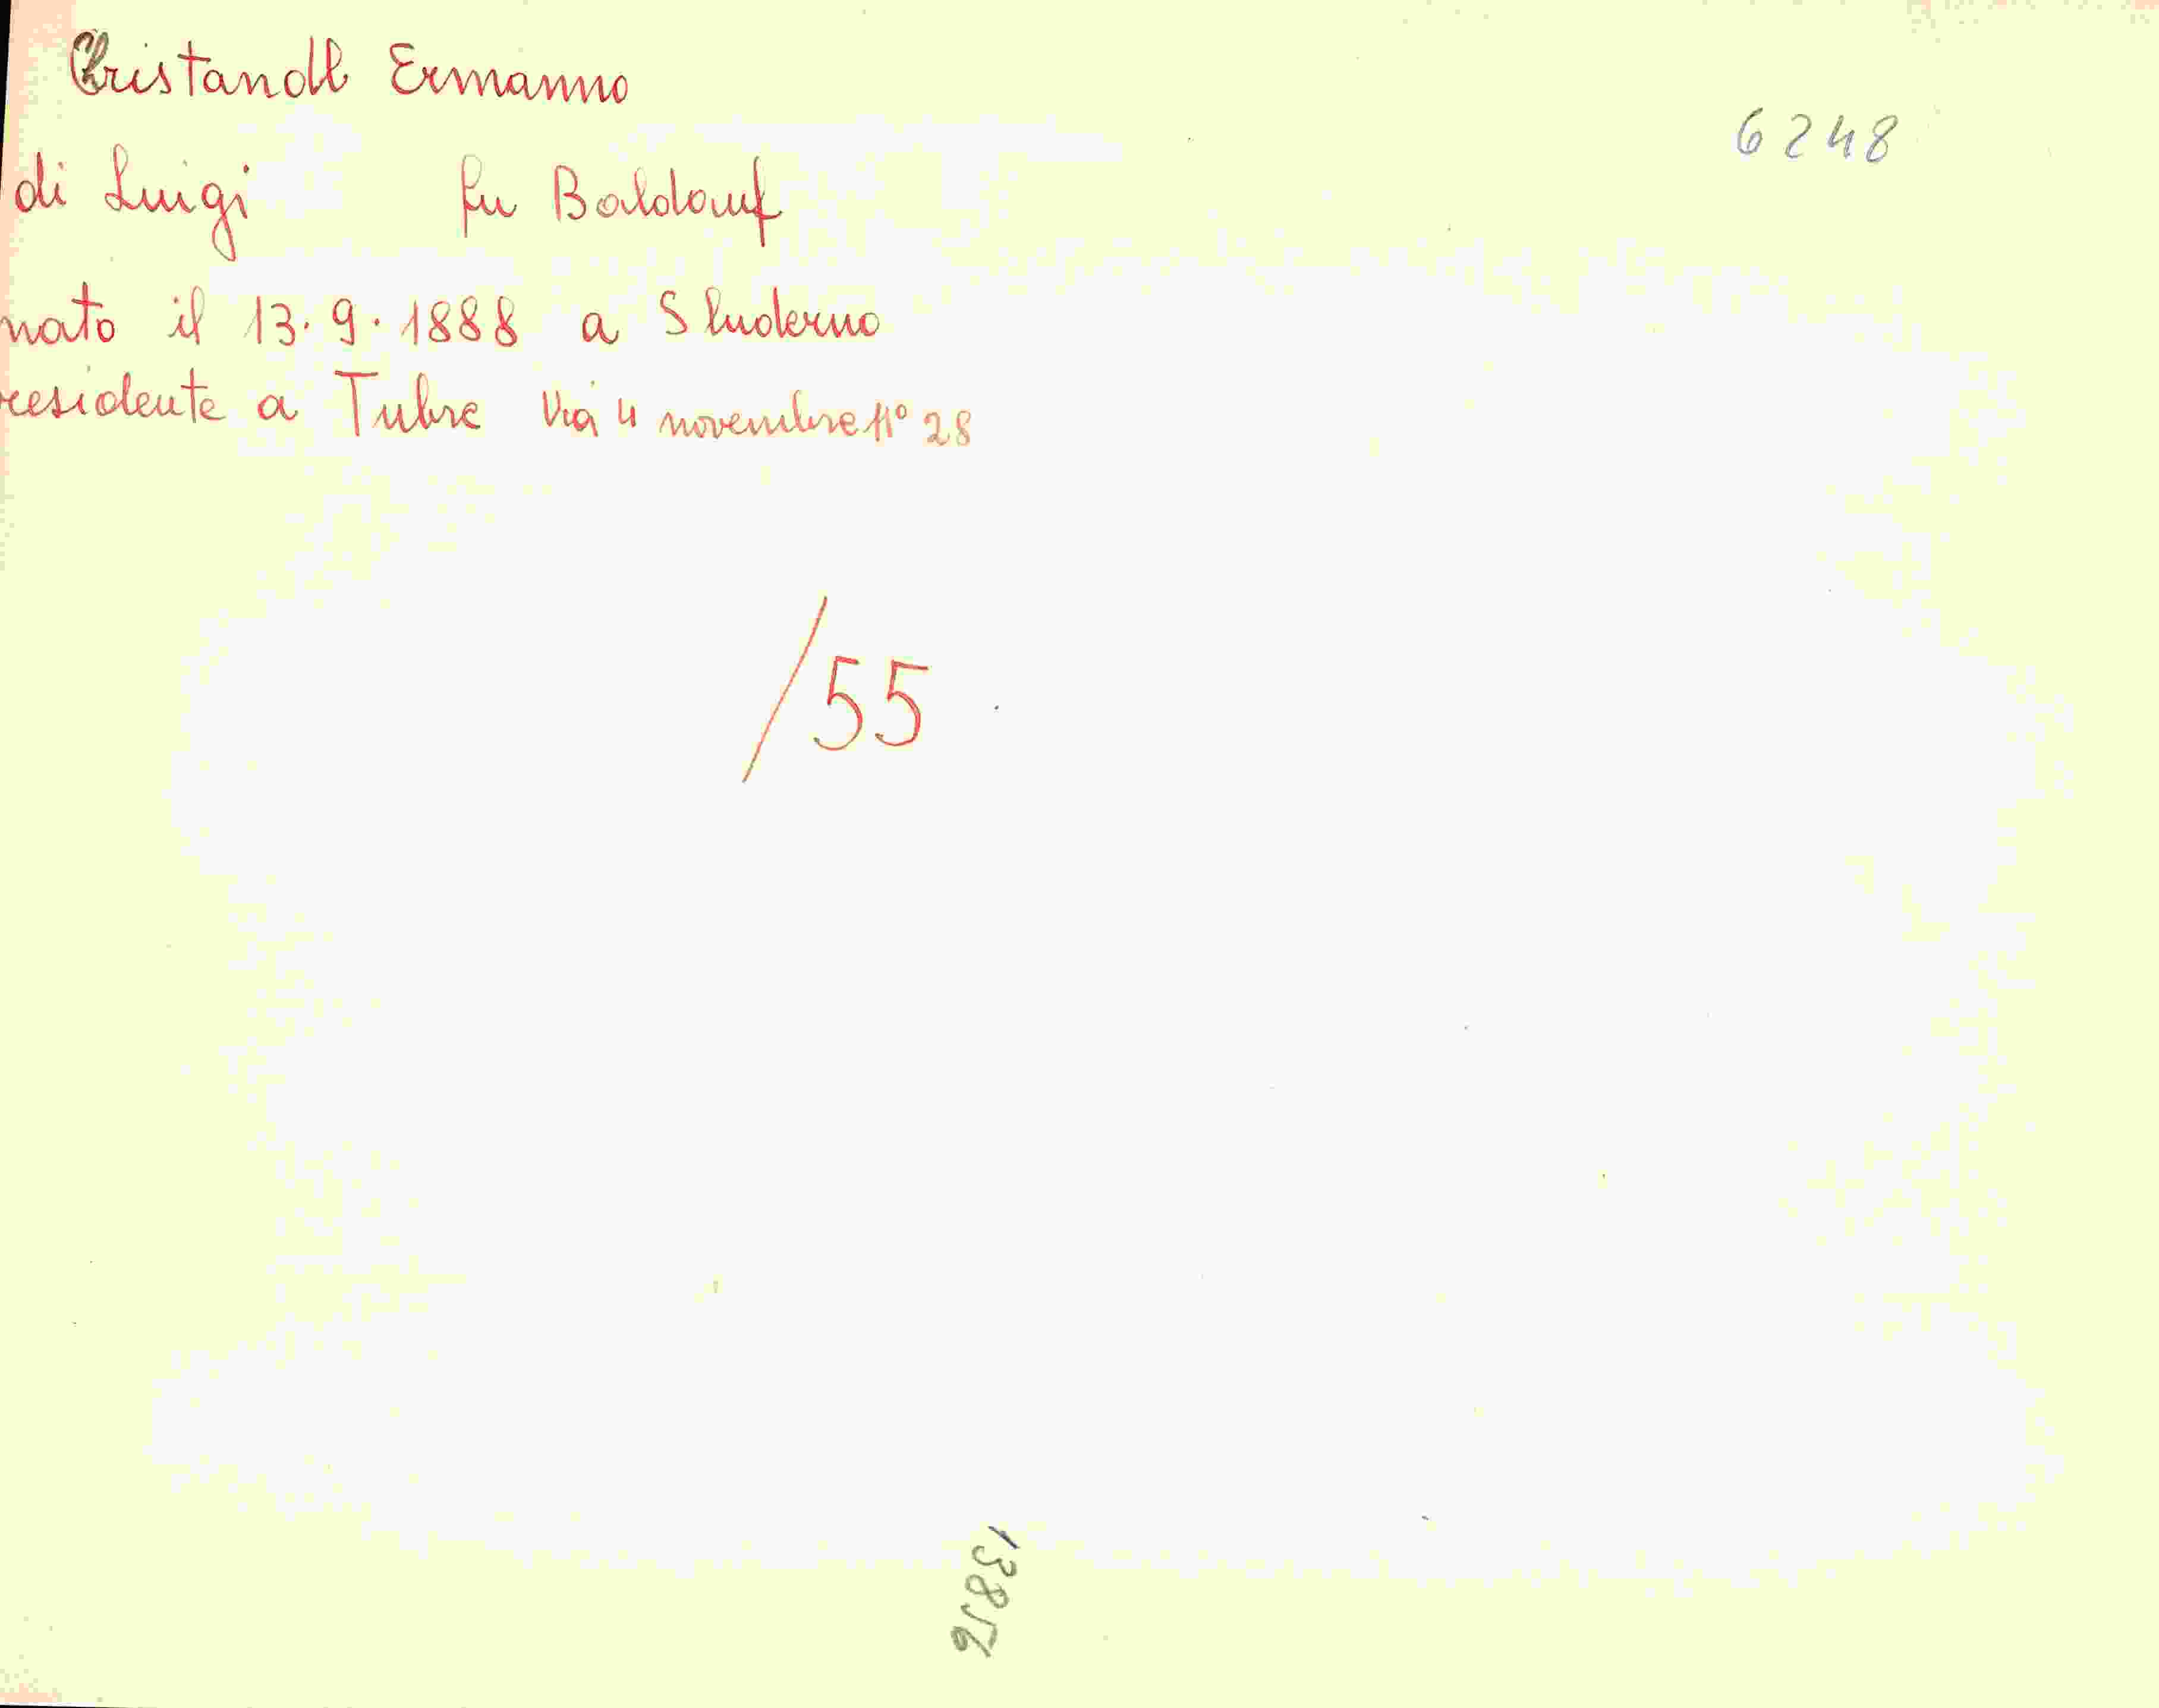 Christandl Ermanno
6248
di Luigi fu Baldauf
nato il 13.9.1888 a Sluderno
residente a Tubre Via 4 novembre n° 28
/55
13856